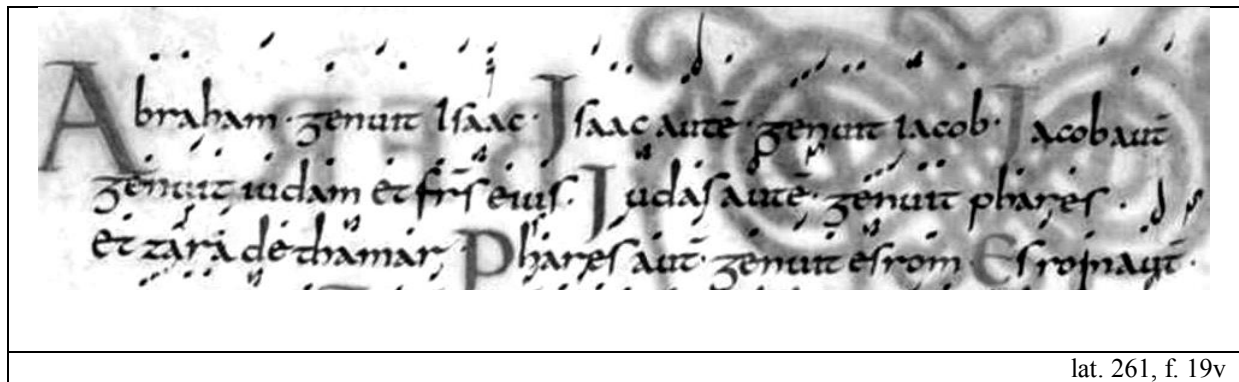 Abraham · genuit Isaac · Isaac autē · genuit iacob · Iacob aut̄
genuit iudam et fr̄s eius · Iudas autē · genuit phares ·
et zara de thamar, Phares aut̄ · genuit esrom · Esrom aut̄ ·
lat. 261, f. 19v